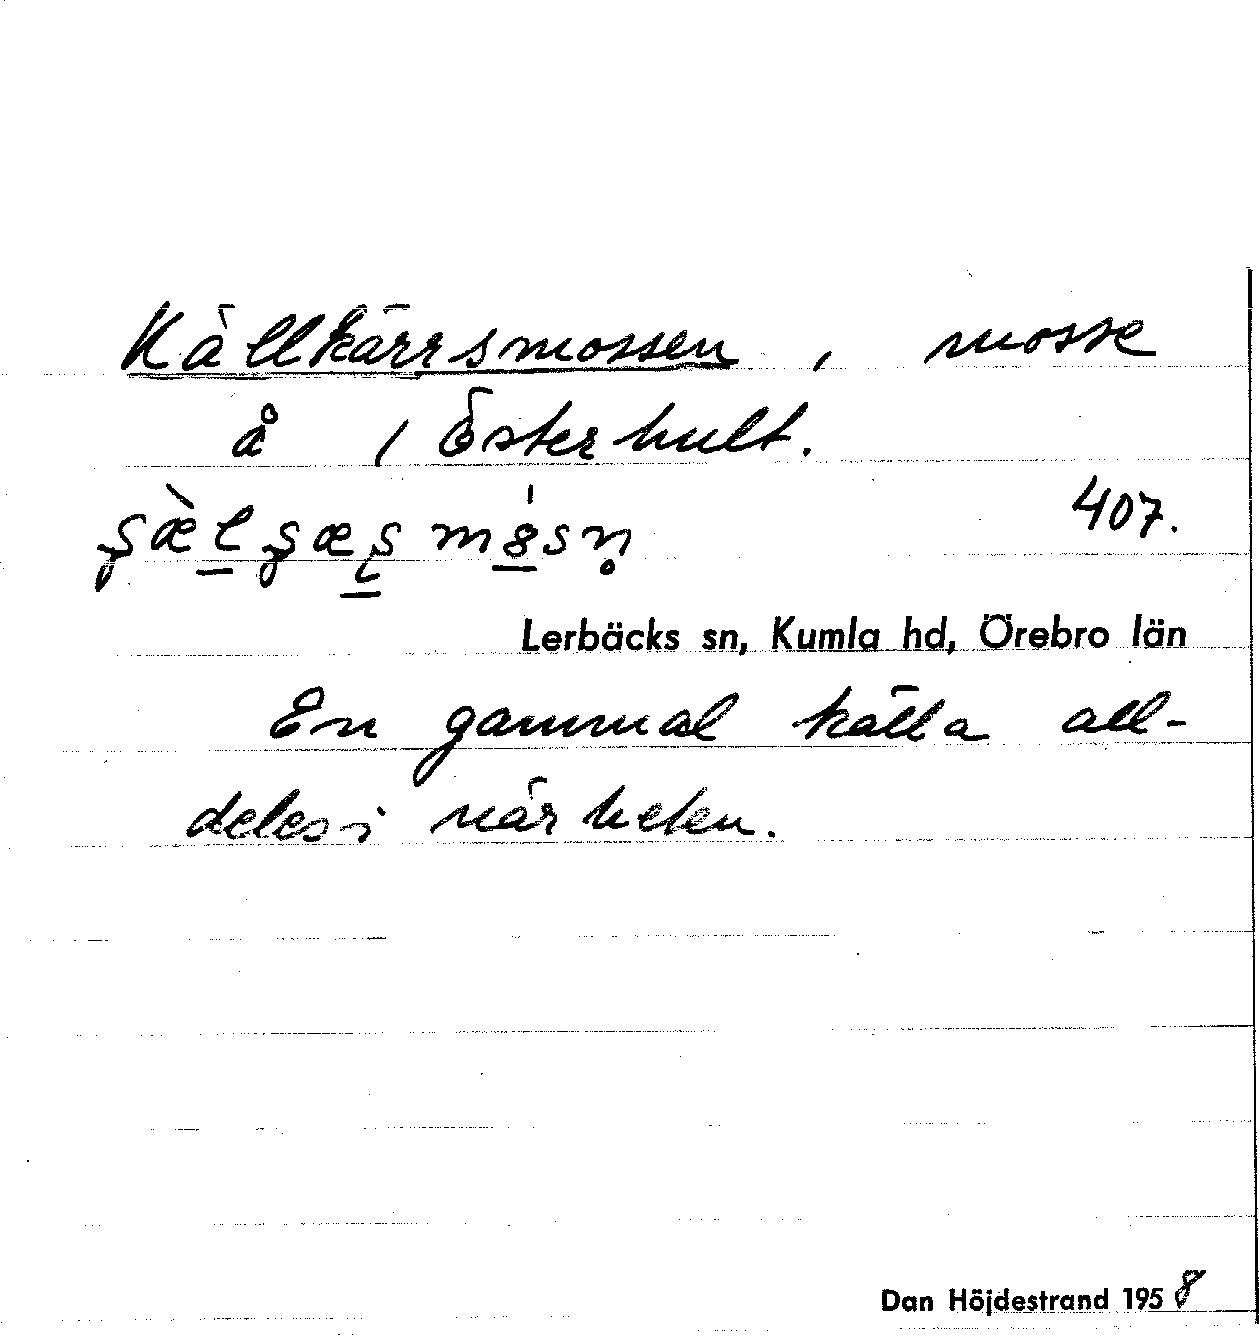 Källkärrsmossen, mosse
å 1 Österhult.
407.
Lerbäcks sn, Kumla hd, Örebro län
En gammal källa all-
deles i närheten.
Dan Höjdestrand 1958